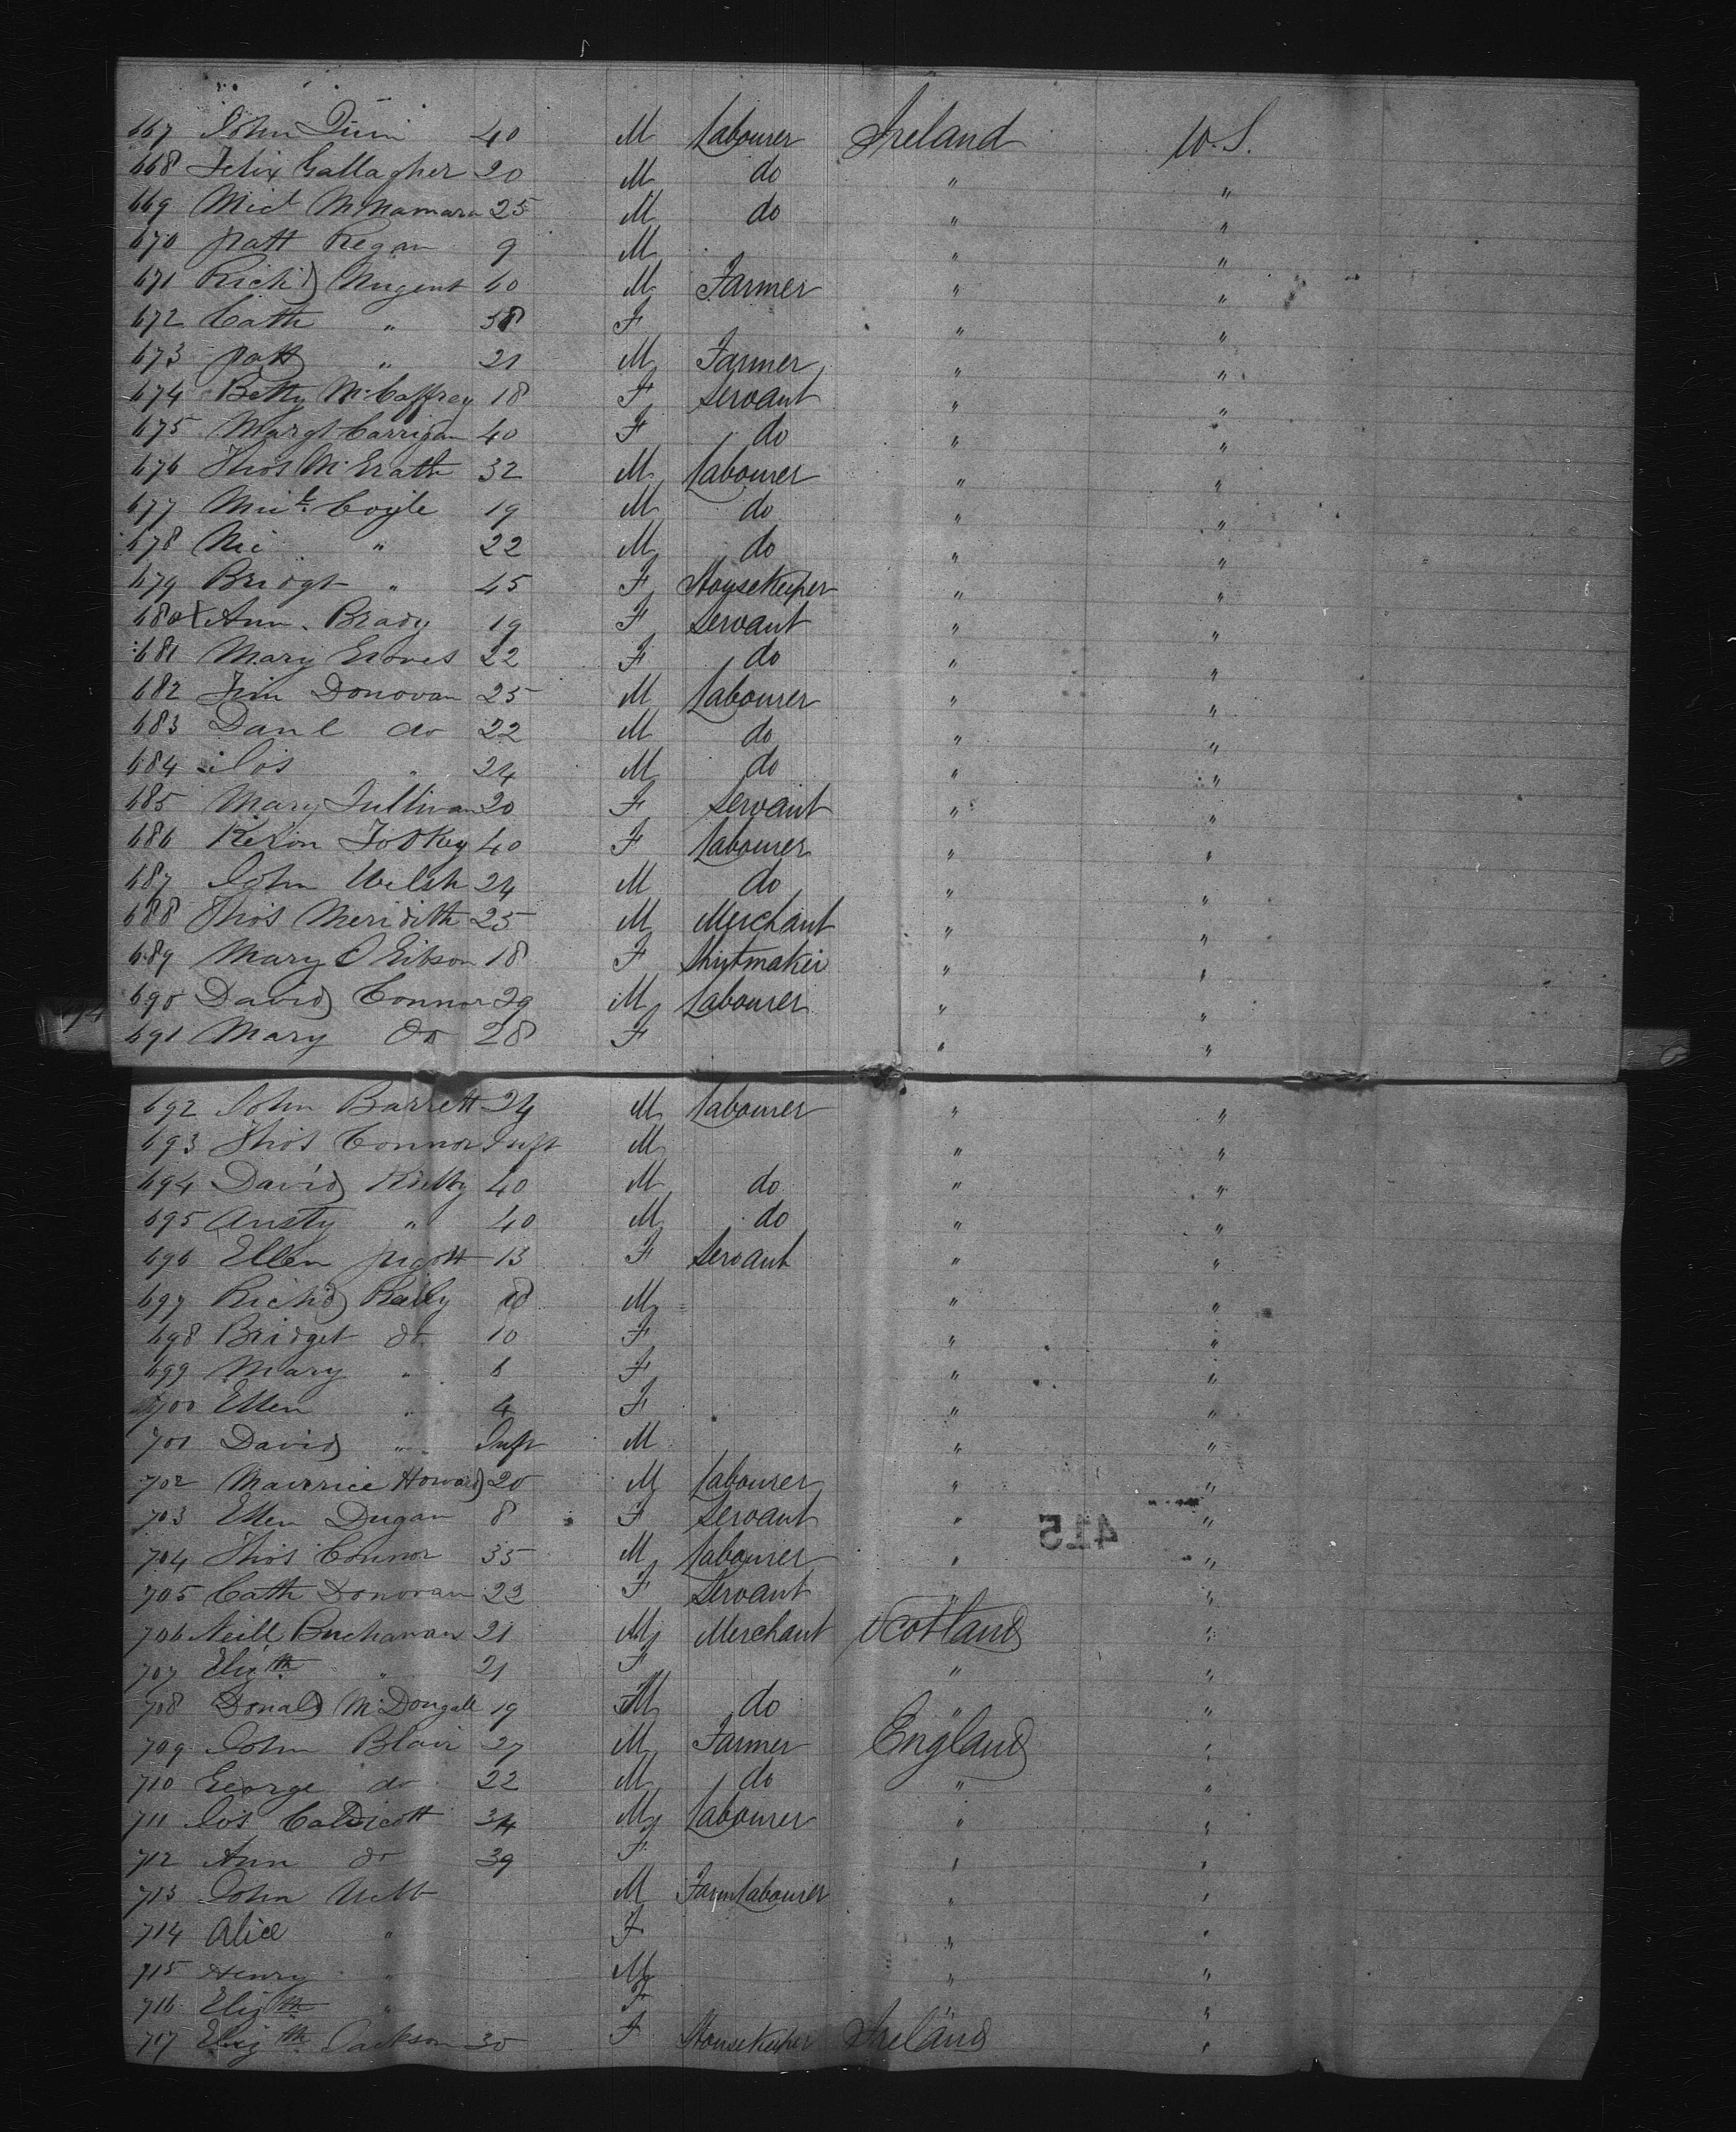 667 John Quin 40 M Labourer Ireland U.S.
668 Felix Gallagher 20 M do " "
669 Micl McNamara 25 M do " "
670 Patt Regan 9 M " "
671 Richd Nugent 60 M Farmer " "
672 Cath " 58 F " "
673 Patt " 21 M Farmer " "
674 Betty McCaffrey 18 F Servant " "
675 Margt Carrigan 40 F do " "
676 Thos McGrath 32 M Labourer " "
677 Coyle 19 M do " "
678 " 22 M do " "
679 Bridgt " 45 F Housekeeper " "
680 X Ann Brady 19 F Servant " "
681 Mary Groves 22 F do " "
682 Tim Donovan 25 M Labourer " "
683 Danl do 22 M do " "
684 Jos " 24 M do " "
685 Mary Sullivan 20 F Servant " "
686 40 F Labourer " "
687 John Welsh 24 M do " "
688 Thos Meridith 25 M Merchant " "
689 Mary Gibson 18 F Shirtmaker " "
690 David Connor 29 M Labourer " "
691 Mary do 28 F " "
692 John Barrett 24 M Labourer " "
693 Thos Connor Inft M " "
694 David 40 M do " "
695 Ansty " 40 M do " "
696 Ellen Pigott 13 F Servant " "
697 Richd M " "
698 Bridget do 10 F " "
699 Mary " 6 F " "
700 Ellen " 4 F " "
701 David " Inft M " "
702 Maurice Howard 20 M Labourer " "
703 Ellen Dugan 8 F Servant " "
415
704 Thos Connor 35 M Labourer " "
705 Cath Donovan 22 F Servant "
706 Neill Buchanan 21 M Merchant Scotland "
707 Elizth " 21 F " "
708 Donald McDougall 19 M do " "
709 John Blair 27 M Farmer England "
710 George do 22 M do " "
711 Jos Caldicott 34 M Labourer " "
712 Ann do 39 F " "
713 John Webb M Farm Labourer " "
714 Alice " F " "
715 Henry " M " "
716 Elizth " F " "
717 Elizth Jackson 30 F Housekeeper Ireland "